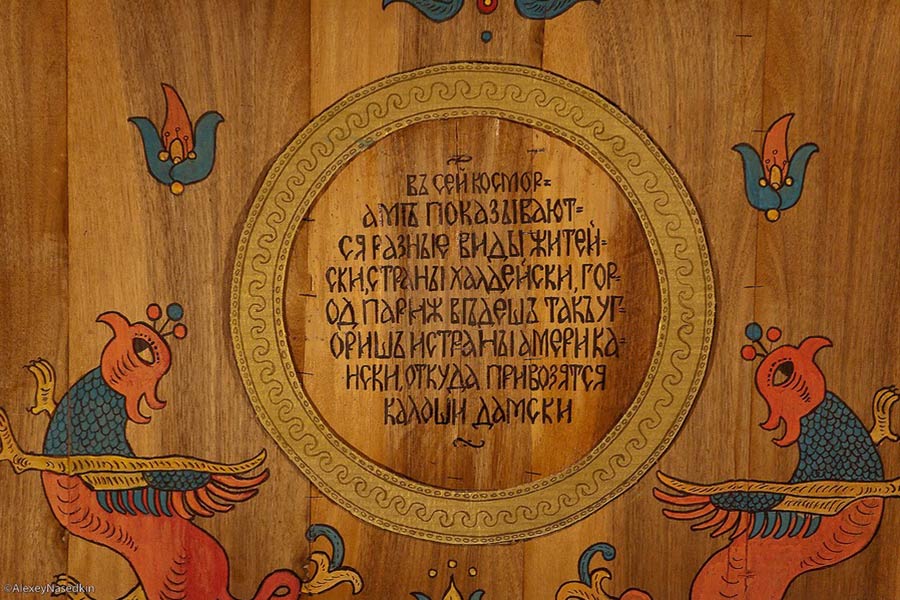 въ сей космор=
амѣ показывают=
ся разные виды житей=
ски, страны халдейски, гор=
од париж въѣдешь такъ уг=
оришь и страны америка=
нски, откуда привозятся
калоши дамски
©AlexeyNasedkin